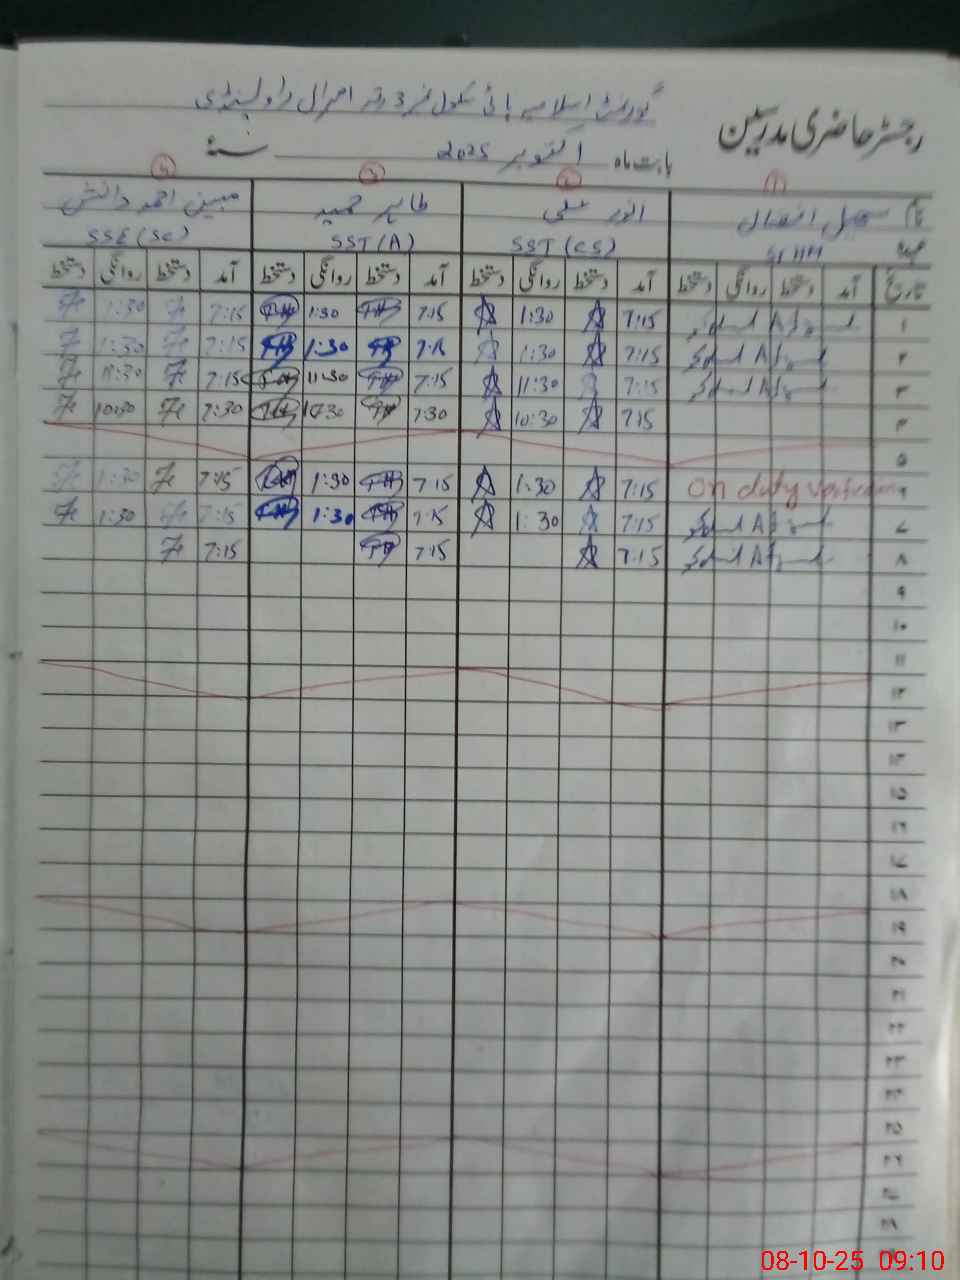 رجسٹر حاضری مدرسین
گورنمنٹ اسلامیہ ہائی سکول نمبر 3 رتہ امرال راولپنڈی
بابت ماہ اکتوبر 2025 سنہ
نام انور علی طاہر حمید مبین احمد دانش
عہدہ SST (CS) SST (A) SSE (Sc)
تاریخ آمد دستخط روانگی دستخط آمد دستخط روانگی دستخط آمد دستخط روانگی دستخط آمد دستخط روانگی دستخط
۱ 7:15 1:30 7:15 1:30 7:15 1:30
۲ 7:15 1:30 7:15 1:30 7:15 1:30
۳ 7:15 11:30 7:15 11:30 7:15 11:30
۴ 7:15 10:30 7:30 10:30 7:30 10:30
۵
۶ on duty 7:15 1:30 7:15 1:30 7:15 1:30
۷ 7:15 1:30 7:15 1:30 7:15 1:30
۸ 7:15 7:15 7:15
۹
۱۰
۱۱
۱۲
۱۳
۱۴
۱۵
۱۶
۱۷
۱۸
۱۹
۲۰
۲۱
۲۲
۲۳
۲۴
۲۵
۲۶
۲۷
۲۸
08-10-25 09:10